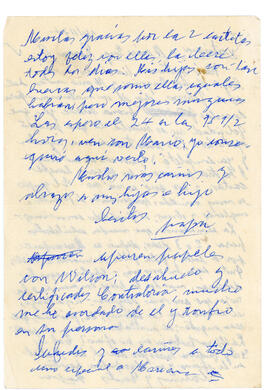 Muchas gracias por la 2 cartitas
estoy feliz con ellas, la leeré
todos los días. Mis hijos son tan
buenas que como ellas iguales
habrán pero mejores ninguna
Las espero el 24 a las 9½
horas; ven con Mario, yo
aquí verlo!
Muchos más cariños y
abrazos a mis hijas e hijo
Carlos
papá
apuren papeles
con Wilson; desahucio y
certificados Contraloría, mucho
me he acordado de él y confío
en su persona
Saludos y cariños a todos
uno especial a